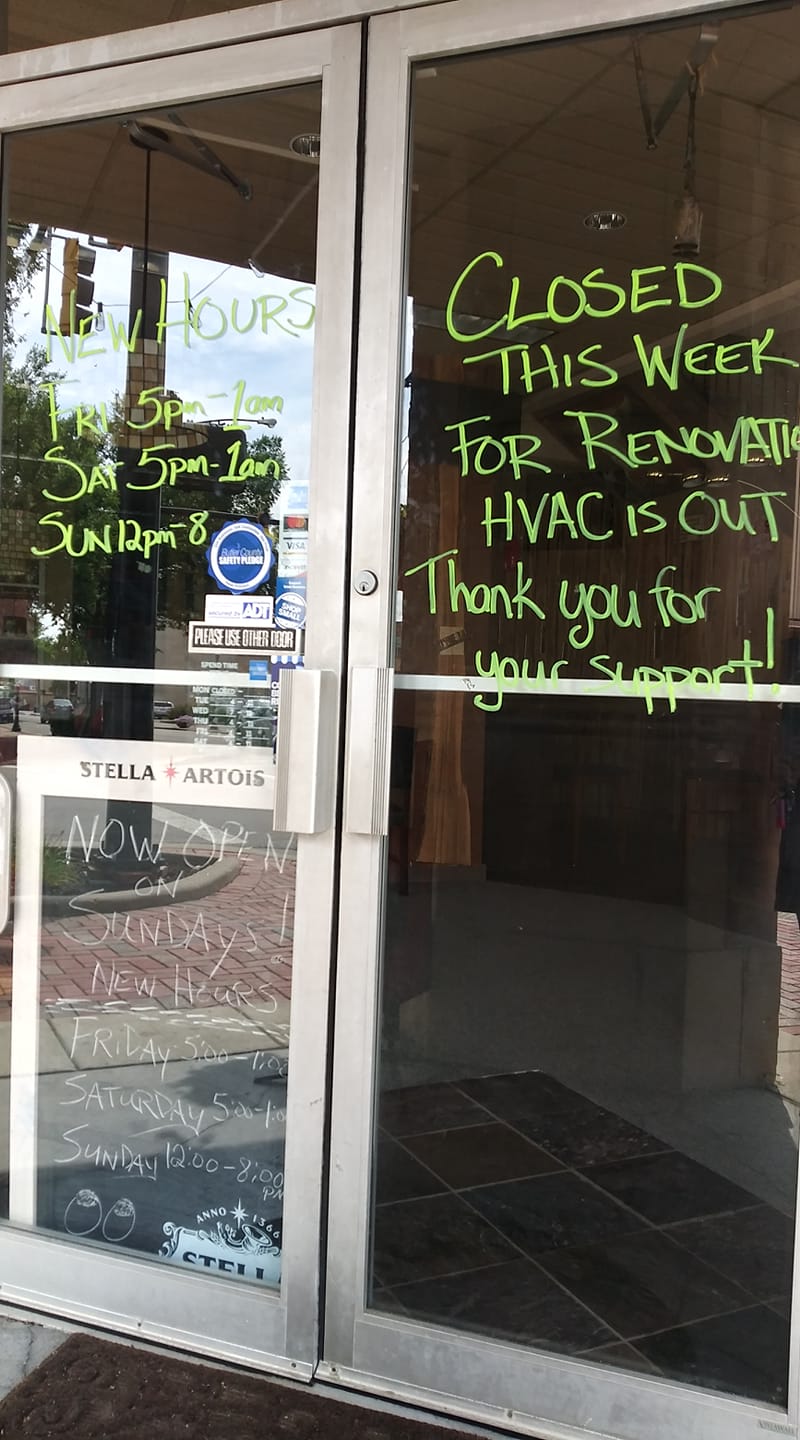 NEW HOURS
FRI 5pm-1am
SAT 5pm-1am
SUN 12pm-8
CLOSED
THIS WEEK
FOR RENOVATIO
HVAC IS OUT
Thank you for
your support!
Butler County
SAFETY PLEDGE
VISA
secured by ADT
SHOP
SMALL
PLEASE USE OTHER DOOR
SPEND TIME
MON CLOSED
TUE
WED
THU
FRI
SAT
STELLA ARTOIS
NOW OPEN
ON
SUNDAYS!
NEW HOURS
FRIDAY 5:00-1:00
SATURDAY 5:00-1:0
SUNDAY 12:00-8:00
PM
ANNO 1366
STELLA